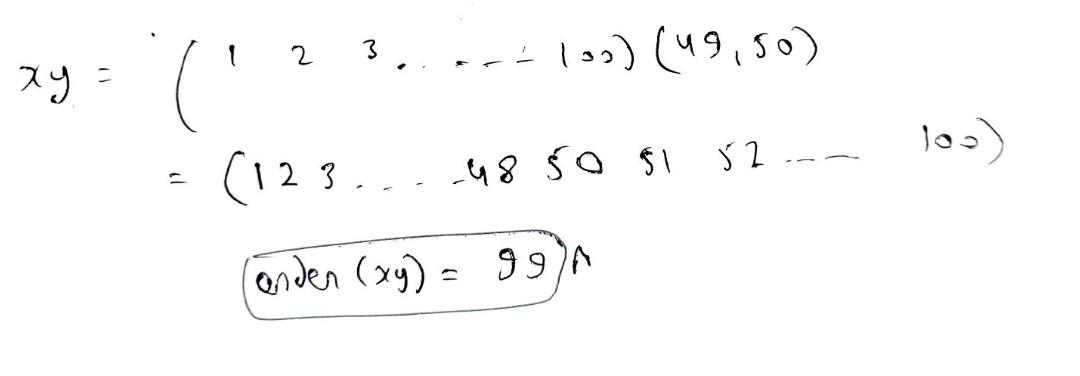 xy = ( 1 2 3 . . - - - - 100) (49, 50)
= (1 2 3 . . . . - 48 50 51 52 - - - 100)
order (xy) = 99